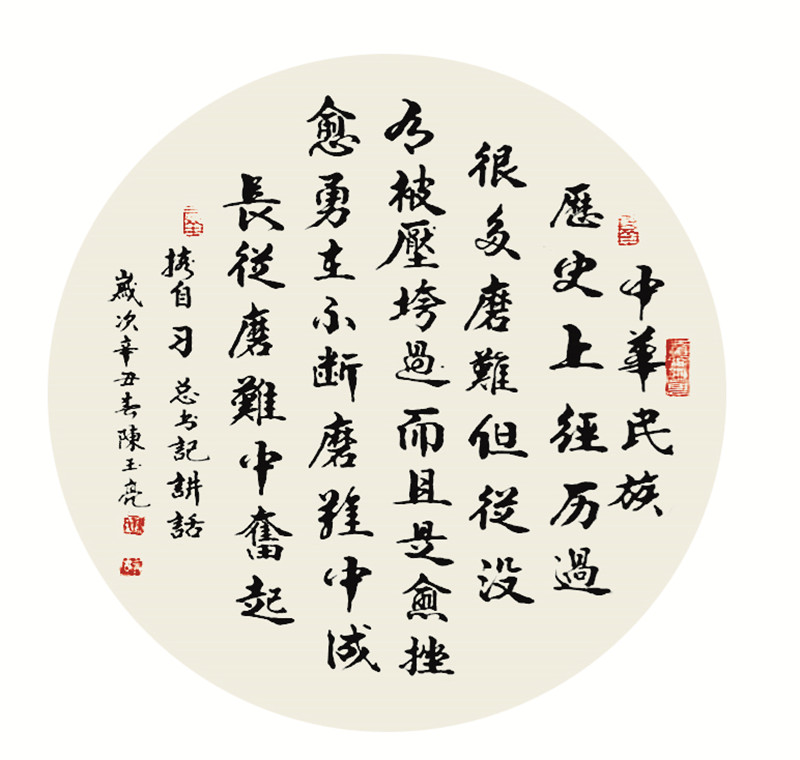 中華民族
歷史上經历過
很多磨難但從没
有被壓垮過而且是愈挫
愈勇在不断磨難中成
長從磨難中奮起
摘自习总书記讲話
歲次辛丑春陳玉亮